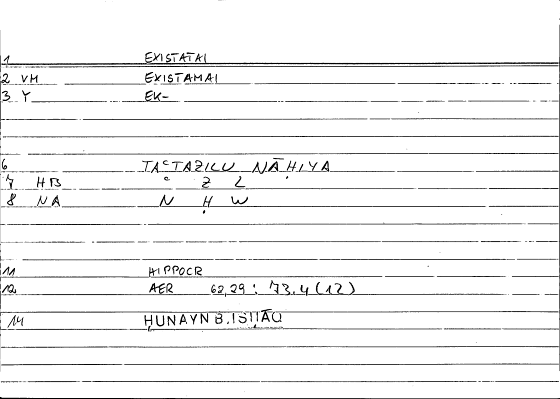 1 EXISTATAI
2 VM EXISTAMAI
3 Y EK-
6 TAʿTAZILU NĀḤIYA
7 HB ʿ Z L
8 NA N Ḥ W
11 HIPPOCR
12 AER 62,29 : 73.4 (12)
14 ḤUNAYN B. ISḤĀQ